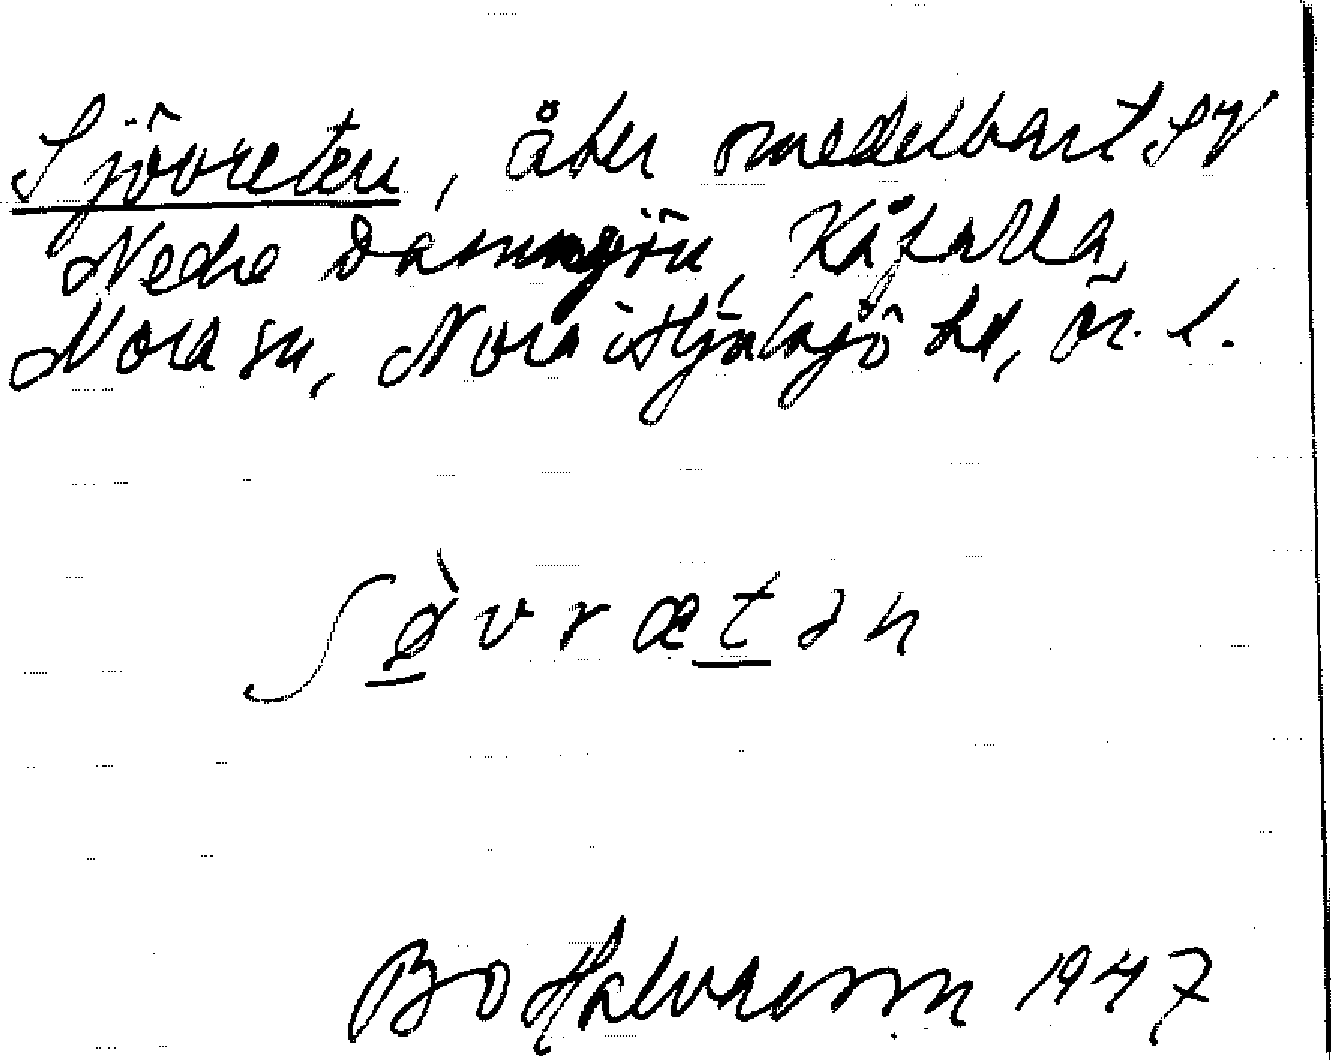 Sjövreten, åker omedelbart SV
Nedre Dammsjön, Kåfalla,
Nora sn, Nora i Hjulsjö hd, Ör. l.
ʃø̀vrætən
Bo Halvarsson 1947